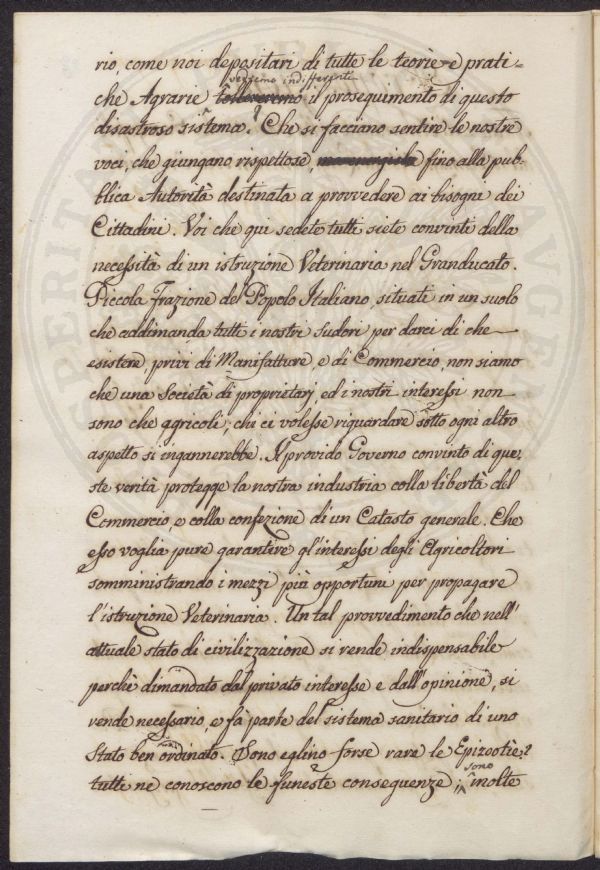 rio, come noi depositari di tutte le teorìe e prati=
vedremo indifferenti
che Agrarie tollereremo il proseguimento di questo
disastroso sistema? Che si facciano sentire le nostre
voci, che giungano rispettose, fino alla pub-
blica Autorità destinata a provvedere ai bisogni dei
Cittadini. Voi che qui sedete tutti siete convinti della
necessità di un istruzione Veterinaria nel Granducato.
Piccola frazione del Popolo Italiano, situati in un suolo
che addimanda tutti i nostri sudori per darci di che
esistere, privi di Manifatture, e di Commercio, non siamo
che una Società di proprietarj, ed i nostri interessi non
sono che agricoli; chi ci volesse riguardare sotto ogni altro
aspetto si ingannerebbe. Il provido Governo convinto di que-
ste verità protegge la nostra industria colla libertà del
Commercio, e colla confezione di un Catasto generale. Che
esso voglia pure garantire gl'interessi degli Agricoltori
somministrando i mezzi più opportuni per propagare
l'istruzione Veterinaria. Un tal provvedimento che nell'
attuale stato di civilizzazione si rende indispensabile
perchè dimandato dal privato interesse e dall'opinione, si
rende necessario, e fà parte del sistema sanitario di uno
Stato ben ordinato. Sono eglino forse rare le Epizootìe?
sono
tutti ne conoscono le funeste conseguenze; molte